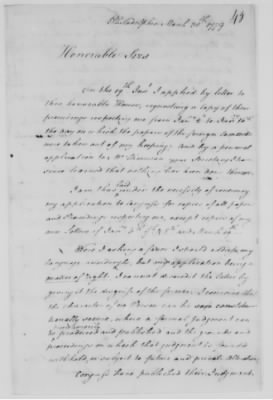 45
Philadelphia March 30th 1779
Honorable Sirs
On the 19th Jany I applied by letter to
this honorable House, requesting a copy of their
proceedings respecting me from Jany to
the day on which the papers of the foreign Committee
were taken out of my keeping. And by a personal
application to Mr Thomson your Secretary I have
since learned that nothing has been done thereon
I am that under the necessity of renewing
my application to Congress for copies of all papers
and proceedings respecting me, except copies of my
own letters of Jany
Were I asking a favor I should address my
language accordingly, but my application being a
matter of Right, I cannot discredit the latter by
giving it the disguise of the former. I conceive that
the character of no Person can be safe
secure, where a formal Judgment can
be produced and published and the grounds and
proceedings on which that judgment is
withheld, or subject to future and private Alteration.
Congress have published their Judgment